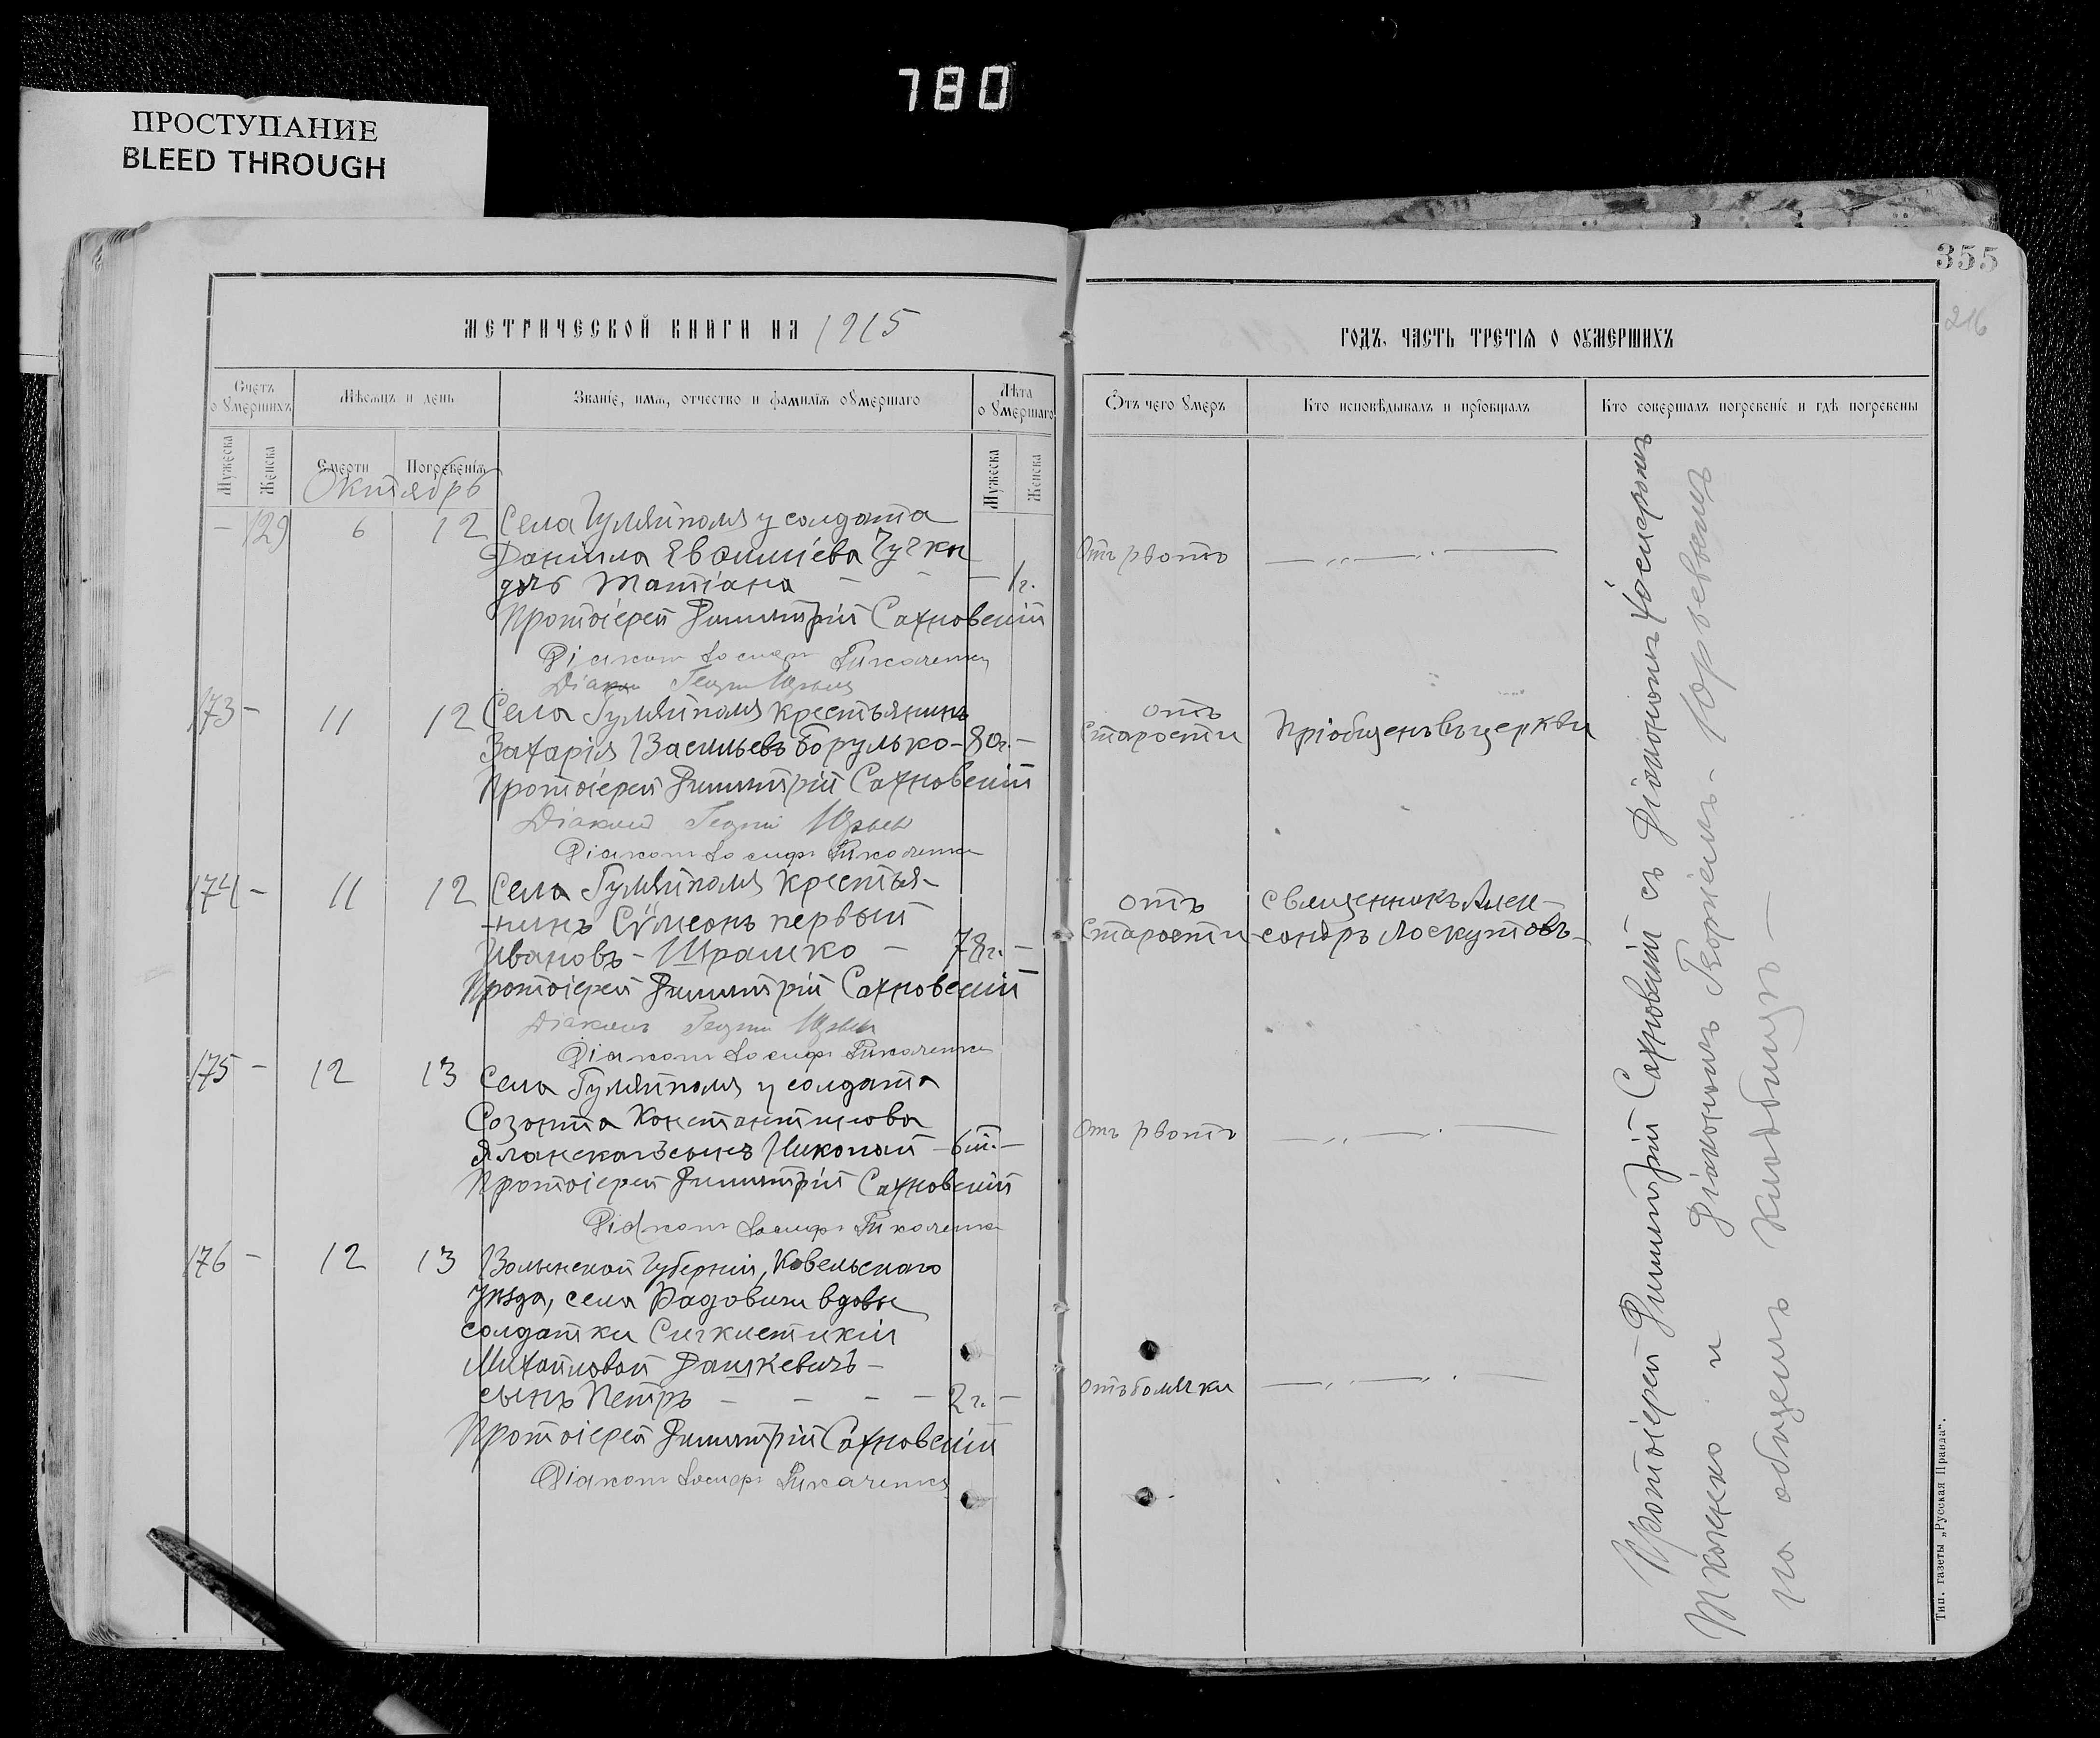 780
ПРОСТУПАНИЕ
BLEED THROUGH
355
216
МЕТРИЧЕСКОЙ КНИГИ НА 1915
ГОДЪ, ЧАСТЬ ТРЕТІЯ О ОУМЕРШИХЪ
Счетъ о умершихъ
Мѣсяцъ и день
Званіе, имя, отчество и фамилія умершаго
Лѣта о умершаго
Отъ чего умеръ
Кто исповѣдывалъ и пріобщалъ
Кто совершалъ погребеніе и гдѣ погребены
Мужеска
Женска
Смерти
Погребенія
Мужеска
Женска
Октябрь
— 129 6 12 Села Гуляйполя у солдата
Даніила Евѳиміева Гучки
дочь Татіана — — — 1 г.
Отъ рвотъ
Протоіерей Димитрій Сахновскій
Діаконъ Іосифъ
Діаконъ Георгій Юрьевъ
173 — 11 12 Села Гуляйполя крестьянинъ
Захарія Васильевъ Борулько — 80 г. —
отъ
старости
Пріобщенъ въ церкви
Протоіерей Димитрій Сахновскій
Діаконъ Георгій Юрьевъ
Діаконъ Іосифъ
174 — 11 12 Села Гуляйполя крестья-
-нинъ Сѵмеонъ первый
Ивановъ — Шрамко — 78 г. —
отъ
старости
священникъ Алек-
сандръ Лоскутовъ
Протоіерей Димитрій Сахновскій
Діаконъ Георгій Юрьевъ
Діаконъ Іосифъ
175 — 12 13 Села Гуляйполя у солдата
Созонта Константинова
сынъ Николай — 6 м. —
Отъ рвотъ
Протоіерей Димитрій Сахновскій
Діаконъ Іосифъ
176 — 12 13 Волынской губерніи, Ковельскаго
уѣзда, села Радовичи вдовы
солдатки
Михайловой Дашкевичъ —
сынъ Петръ — — — — 2 г. —
отъ болячки
Протоіерей Димитрій Сахновскій
Діаконъ Іосифъ
Протоіерей Димитрій Сахновскій съ Діакономъ Іосифомъ
и Діакономъ Георгіемъ Юрьевымъ
на общемъ кладбищѣ —
Тип. газеты „Русская Правда".